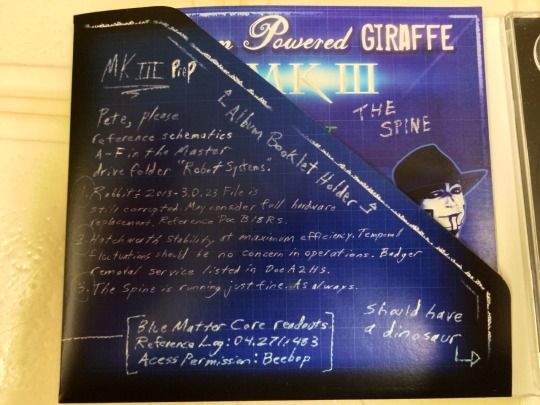 m Powered GIRAFFE
MK III
MK III PREP
THE
SPINE
Album Booklet Holder
Pete, please
reference schematics
A-F in the Master
drive folder "Robot Systems."
1. Rabbit's 2013-3.0.23 File is
still corrupted. May consider full hardware
replacement. Reference Doc B18RS.
2. Hatchworth's stability at maximum efficiency. Temporal
fluctuations should be no concern in operations. Badger
removal service listed in Doc A2HS.
3. The Spine is running just fine. As always.
should have
a dinosaur
Blue Matter Core readouts
Reference Log: 04.27/.483
Acess Permission: Beebop